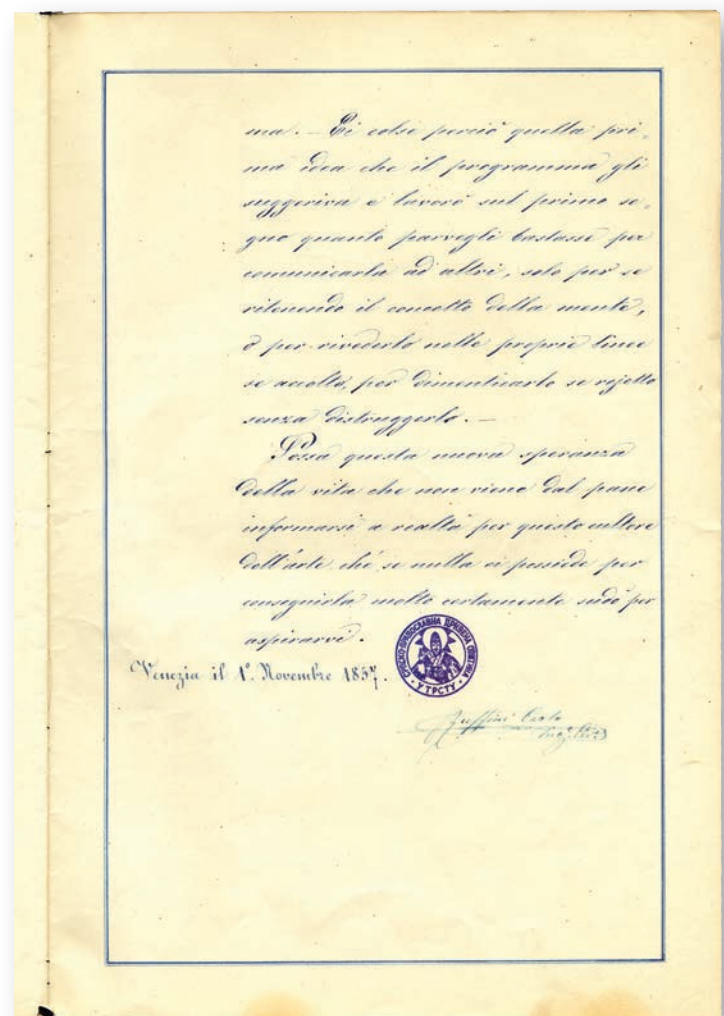 ma. — Ei colse perciò quella pri,
ma idea che il programma gli
suggeriva e lavorò sul primo se,
gno quanto parvegli bastasse per
comunicarla ad altri, solo per se
ritenendo il concetto della mente,
o per rivederlo nelle proprie linee
se accolto, per dimenticarlo se rejetto
senza distruggerlo. —
Possa questa nuova speranza
della vita che non viene dal pane
informarsi a realtà per questo cultore
dell'arte che se nulla ei possiede per
conseguirla molto certamente sudò per
aspirarvi.
СРПСКО-ПРАВОСЛАВНА ЦРКВЕНА ОПШТИНА
У ТРСТУ
Venezia il 1º. Novembre 1857.
Ruffini Carlo